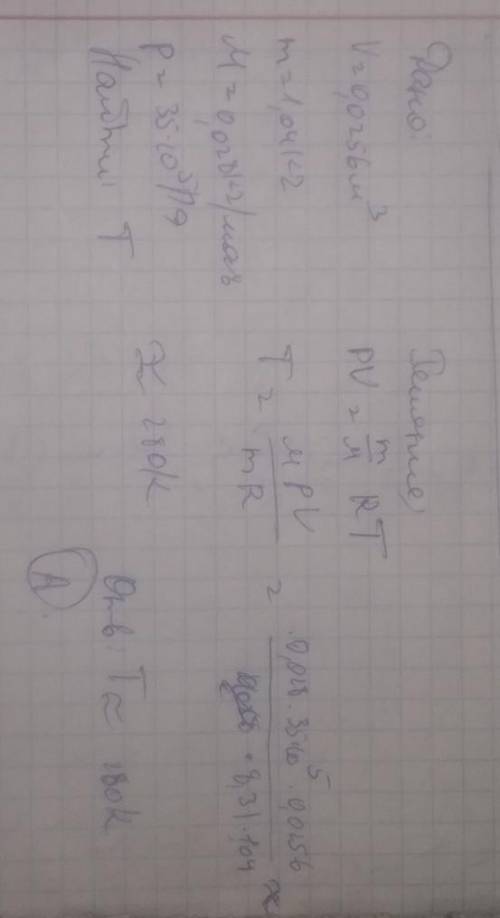 Дано:
V = 0,0256 м³
m = 1,04 кг
M = 0,028 кг/моль
P = 35·10⁵ Па
Найти: T
Решение:
PV = m/M RT
T = MPV/mR = 0,028·35·10⁵·0,0256/8,31·1,04 ≈
≈ 280 K
Отв: T ≈ 280 K
A